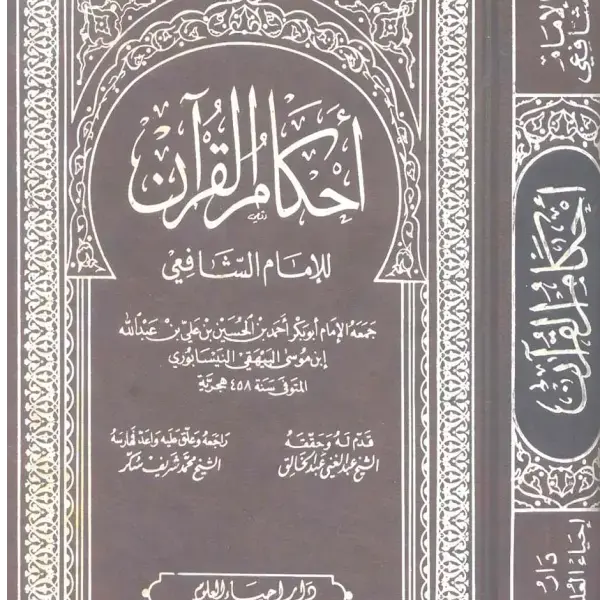 أحكام القرآن
للإمام الشافعي
جمعه الإمام أبو بكر أحمد بن الحسين بن علي بن عبدالله
ابن موسى البيهقي النيسابوري
المتوفى سنة ٤٥٨ هجرية
قدم له وحققه
الشيخ عبد الغني عبد الخالق
راجعه وعلق عليه وأعد فهارسه
الشيخ محمد شريف سكر
دار إحياء العلوم
الإمام
الشافعي
أحكام القرآن
دار
إحياء العلوم